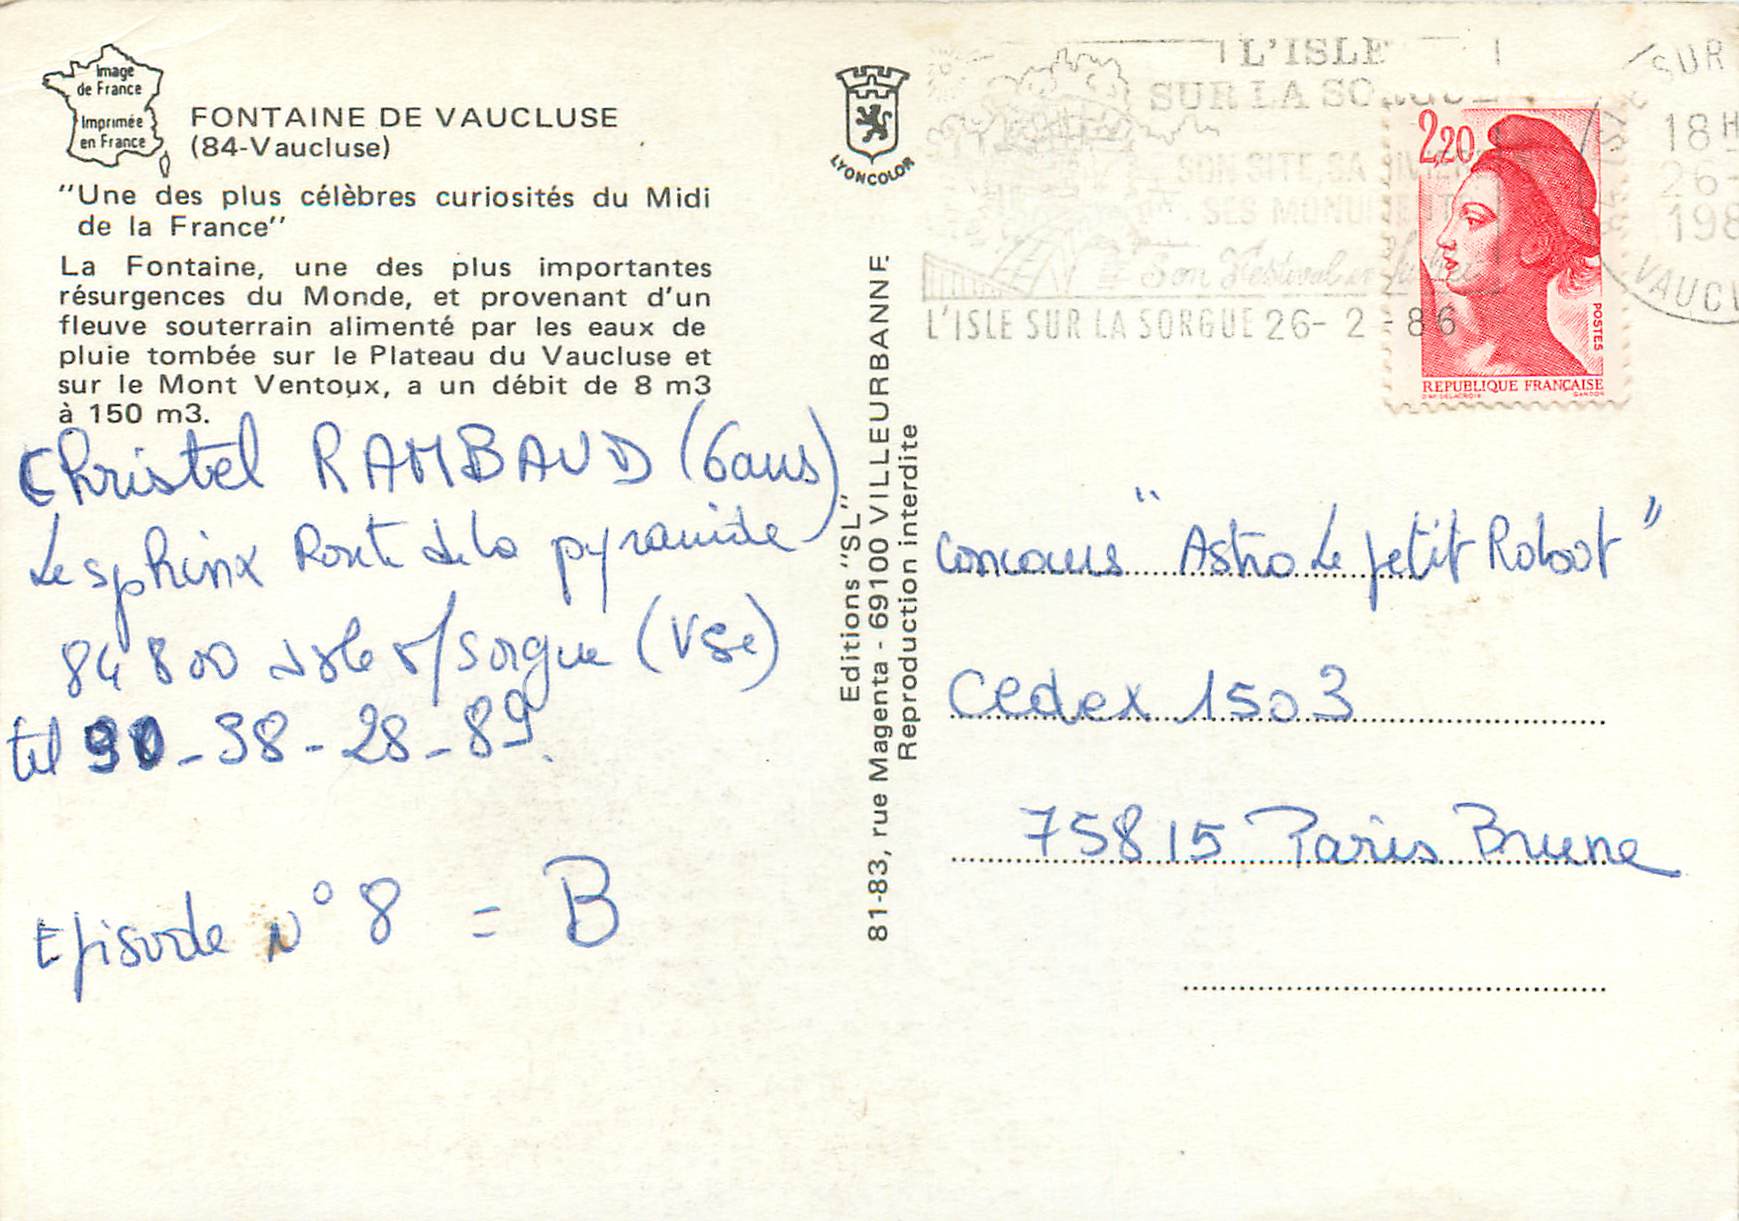 Image
de France
Imprimée
en France
FONTAINE DE VAUCLUSE
(84-Vaucluse)
"Une des plus célèbres curiosités du Midi
de la France"
La Fontaine, une des plus importantes
résurgences du Monde, et provenant d'un
fleuve souterrain alimenté par les eaux de
pluie tombée sur le Plateau du Vaucluse et
sur le Mont Ventoux, a un débit de 8 m3
à 150 m3.
Christel RAMBAUD (6ans)
Le sphinx Route de la pyramide
84800 Isle s/Sorgue (VSe)
tel 90-38-28-89.
Episode N° 8 = B
LYONCOLOR
Editions "SL"
81-83, rue Magenta - 69100 VILLEURBANNE
Reproduction interdite
L'ISLE
SUR LA SORGUE
SON SITE, SA
SES MONUMENTS
Son Festival en
L'ISLE SUR LA SORGUE 26-2-86
SUR
18H
26-
198
VAUCL
2,20
POSTES
REPUBLIQUE FRANÇAISE
D'AP. DELACROIX
GANDON
Concours "Astro Le petit Robot"
Cedex 1503
75815 Paris Brune